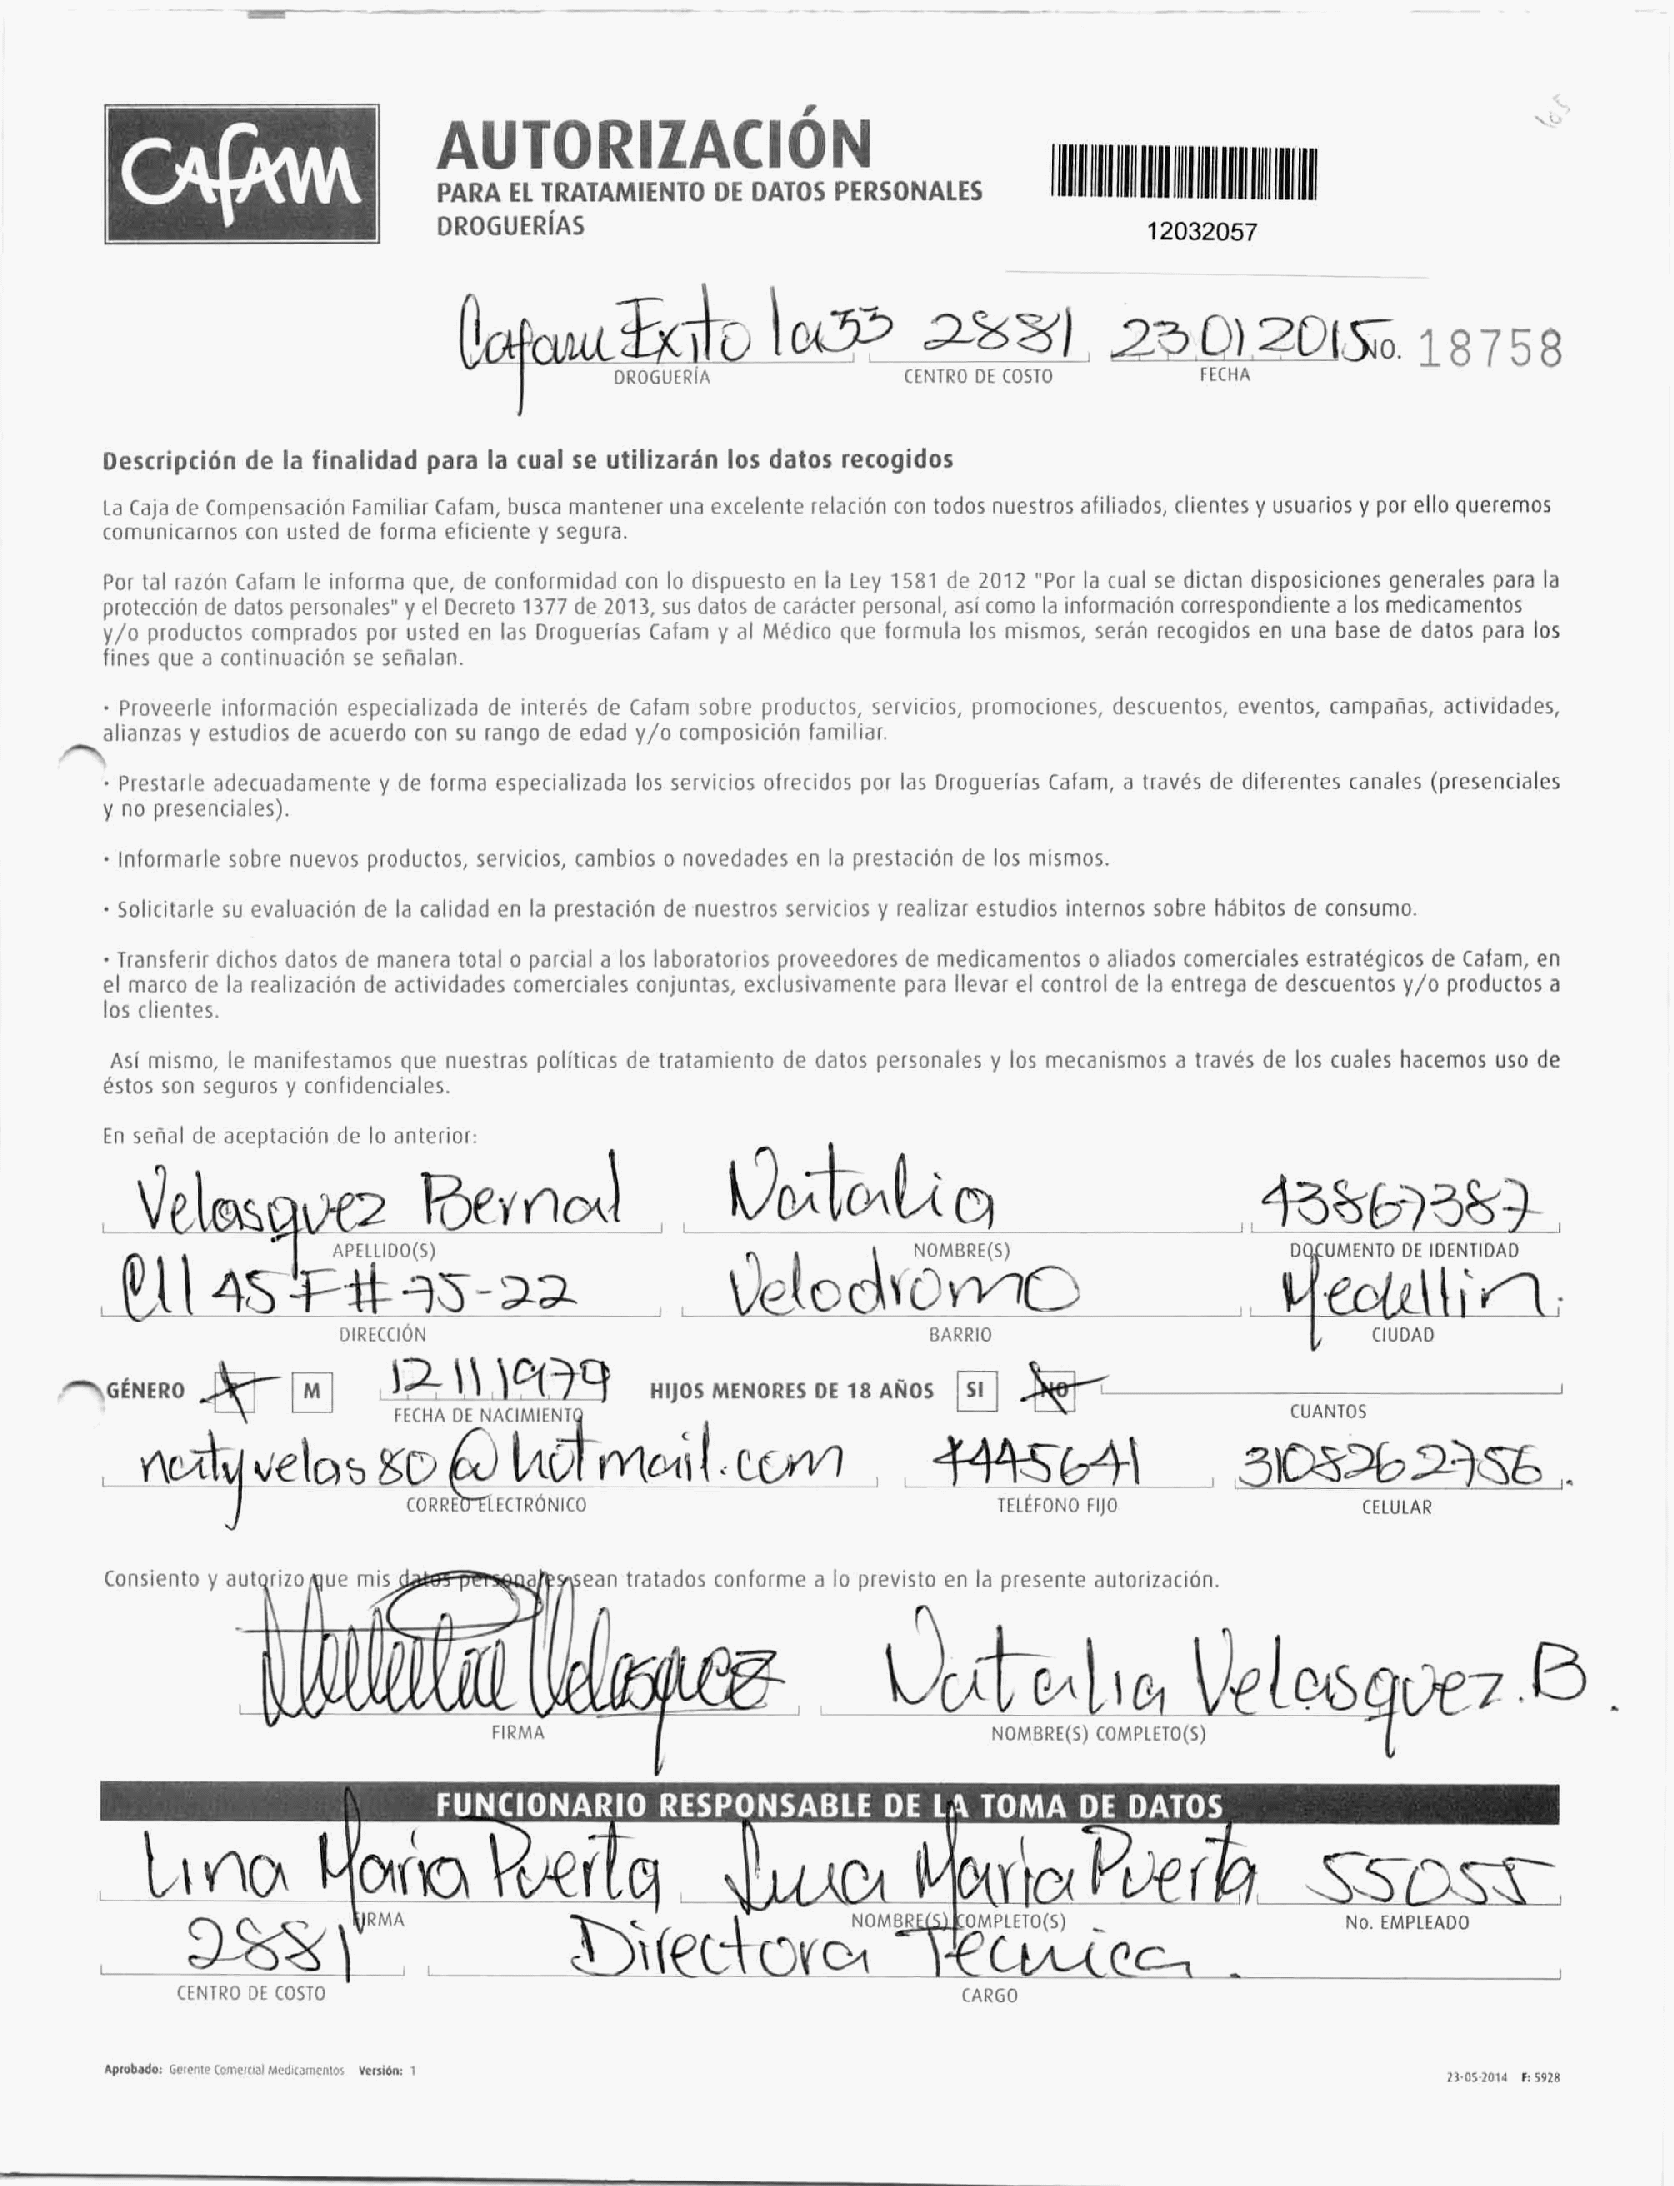 105
Cafam
AUTORIZACIÓN
PARA EL TRATAMIENTO DE DATOS PERSONALES
DROGUERÍAS
12032057
Cafam Exito la 33 2881 23 01 2015 No. 18758
DROGUERÍA CENTRO DE COSTO FECHA
Descripción de la finalidad para la cual se utilizarán los datos recogidos
La Caja de Compensación Familiar Cafam, busca mantener una excelente relación con todos nuestros afiliados, clientes y usuarios y por ello queremos
comunicarnos con usted de forma eficiente y segura.
Por tal razón Cafam le informa que, de conformidad con lo dispuesto en la Ley 1581 de 2012 "Por la cual se dictan disposiciones generales para la
protección de datos personales" y el Decreto 1377 de 2013, sus datos de carácter personal, así como la información correspondiente a los medicamentos
y/o productos comprados por usted en las Droguerías Cafam y al Médico que formula los mismos, serán recogidos en una base de datos para los
fines que a continuación se señalan.
· Proveerle información especializada de interés de Cafam sobre productos, servicios, promociones, descuentos, eventos, campañas, actividades,
alianzas y estudios de acuerdo con su rango de edad y/o composición familiar.
· Prestarle adecuadamente y de forma especializada los servicios ofrecidos por las Droguerías Cafam, a través de diferentes canales (presenciales
y no presenciales).
· Informarle sobre nuevos productos, servicios, cambios o novedades en la prestación de los mismos.
· Solicitarle su evaluación de la calidad en la prestación de nuestros servicios y realizar estudios internos sobre hábitos de consumo.
· Transferir dichos datos de manera total o parcial a los laboratorios proveedores de medicamentos o aliados comerciales estratégicos de Cafam, en
el marco de la realización de actividades comerciales conjuntas, exclusivamente para llevar el control de la entrega de descuentos y/o productos a
los clientes.
Así mismo, le manifestamos que nuestras políticas de tratamiento de datos personales y los mecanismos a través de los cuales hacemos uso de
éstos son seguros y confidenciales.
En señal de aceptación de lo anterior:
Velasquez Bernal Natalia 43867387
APELLIDO(S) NOMBRE(S) DOCUMENTO DE IDENTIDAD
Cll 45 F # 75-22 Velodromo Medellin.
DIRECCIÓN BARRIO CIUDAD
GÉNERO M 12 11 1979 HIJOS MENORES DE 18 AÑOS SI NO
FECHA DE NACIMIENTO CUANTOS
natyvelas80@hotmail.com 4445641 3108262756.
CORREO ELECTRÓNICO TELÉFONO FIJO CELULAR
Consiento y autorizo que mis datos personales sean tratados conforme a lo previsto en la presente autorización.
Natalia Velasquez Natalia Velasquez. B.
FIRMA NOMBRE(S) COMPLETO(S)
FUNCIONARIO RESPONSABLE DE LA TOMA DE DATOS
Lina Maria Puerta Lina Maria Puerta 55055
FIRMA NOMBRE(S) COMPLETO(S) No. EMPLEADO
2881 Directora Tecnica.
CENTRO DE COSTO CARGO
Aprobado: Gerente Comercial Medicamentos Versión: 1
23-05-2014 F: 5928